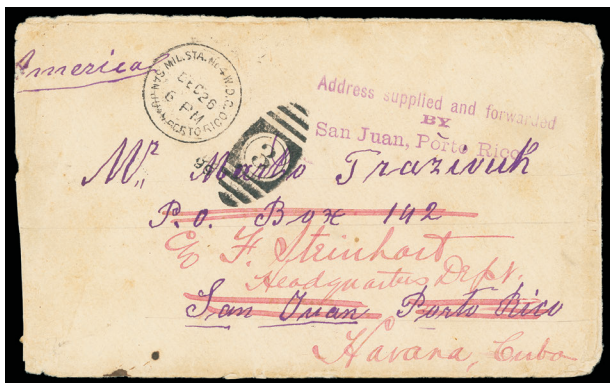 America
MIL. STA. No. 4 W.D.C.
DEC 26
6 PM
PORTO RICO
98
3
Address supplied and forwarded
BY
San Juan, Porto Rico
Mr Marko Trazivuk
P.O. Box 142
F. Steinhart
Headquarters Dept.
San Juan Porto Rico
Havana, Cuba